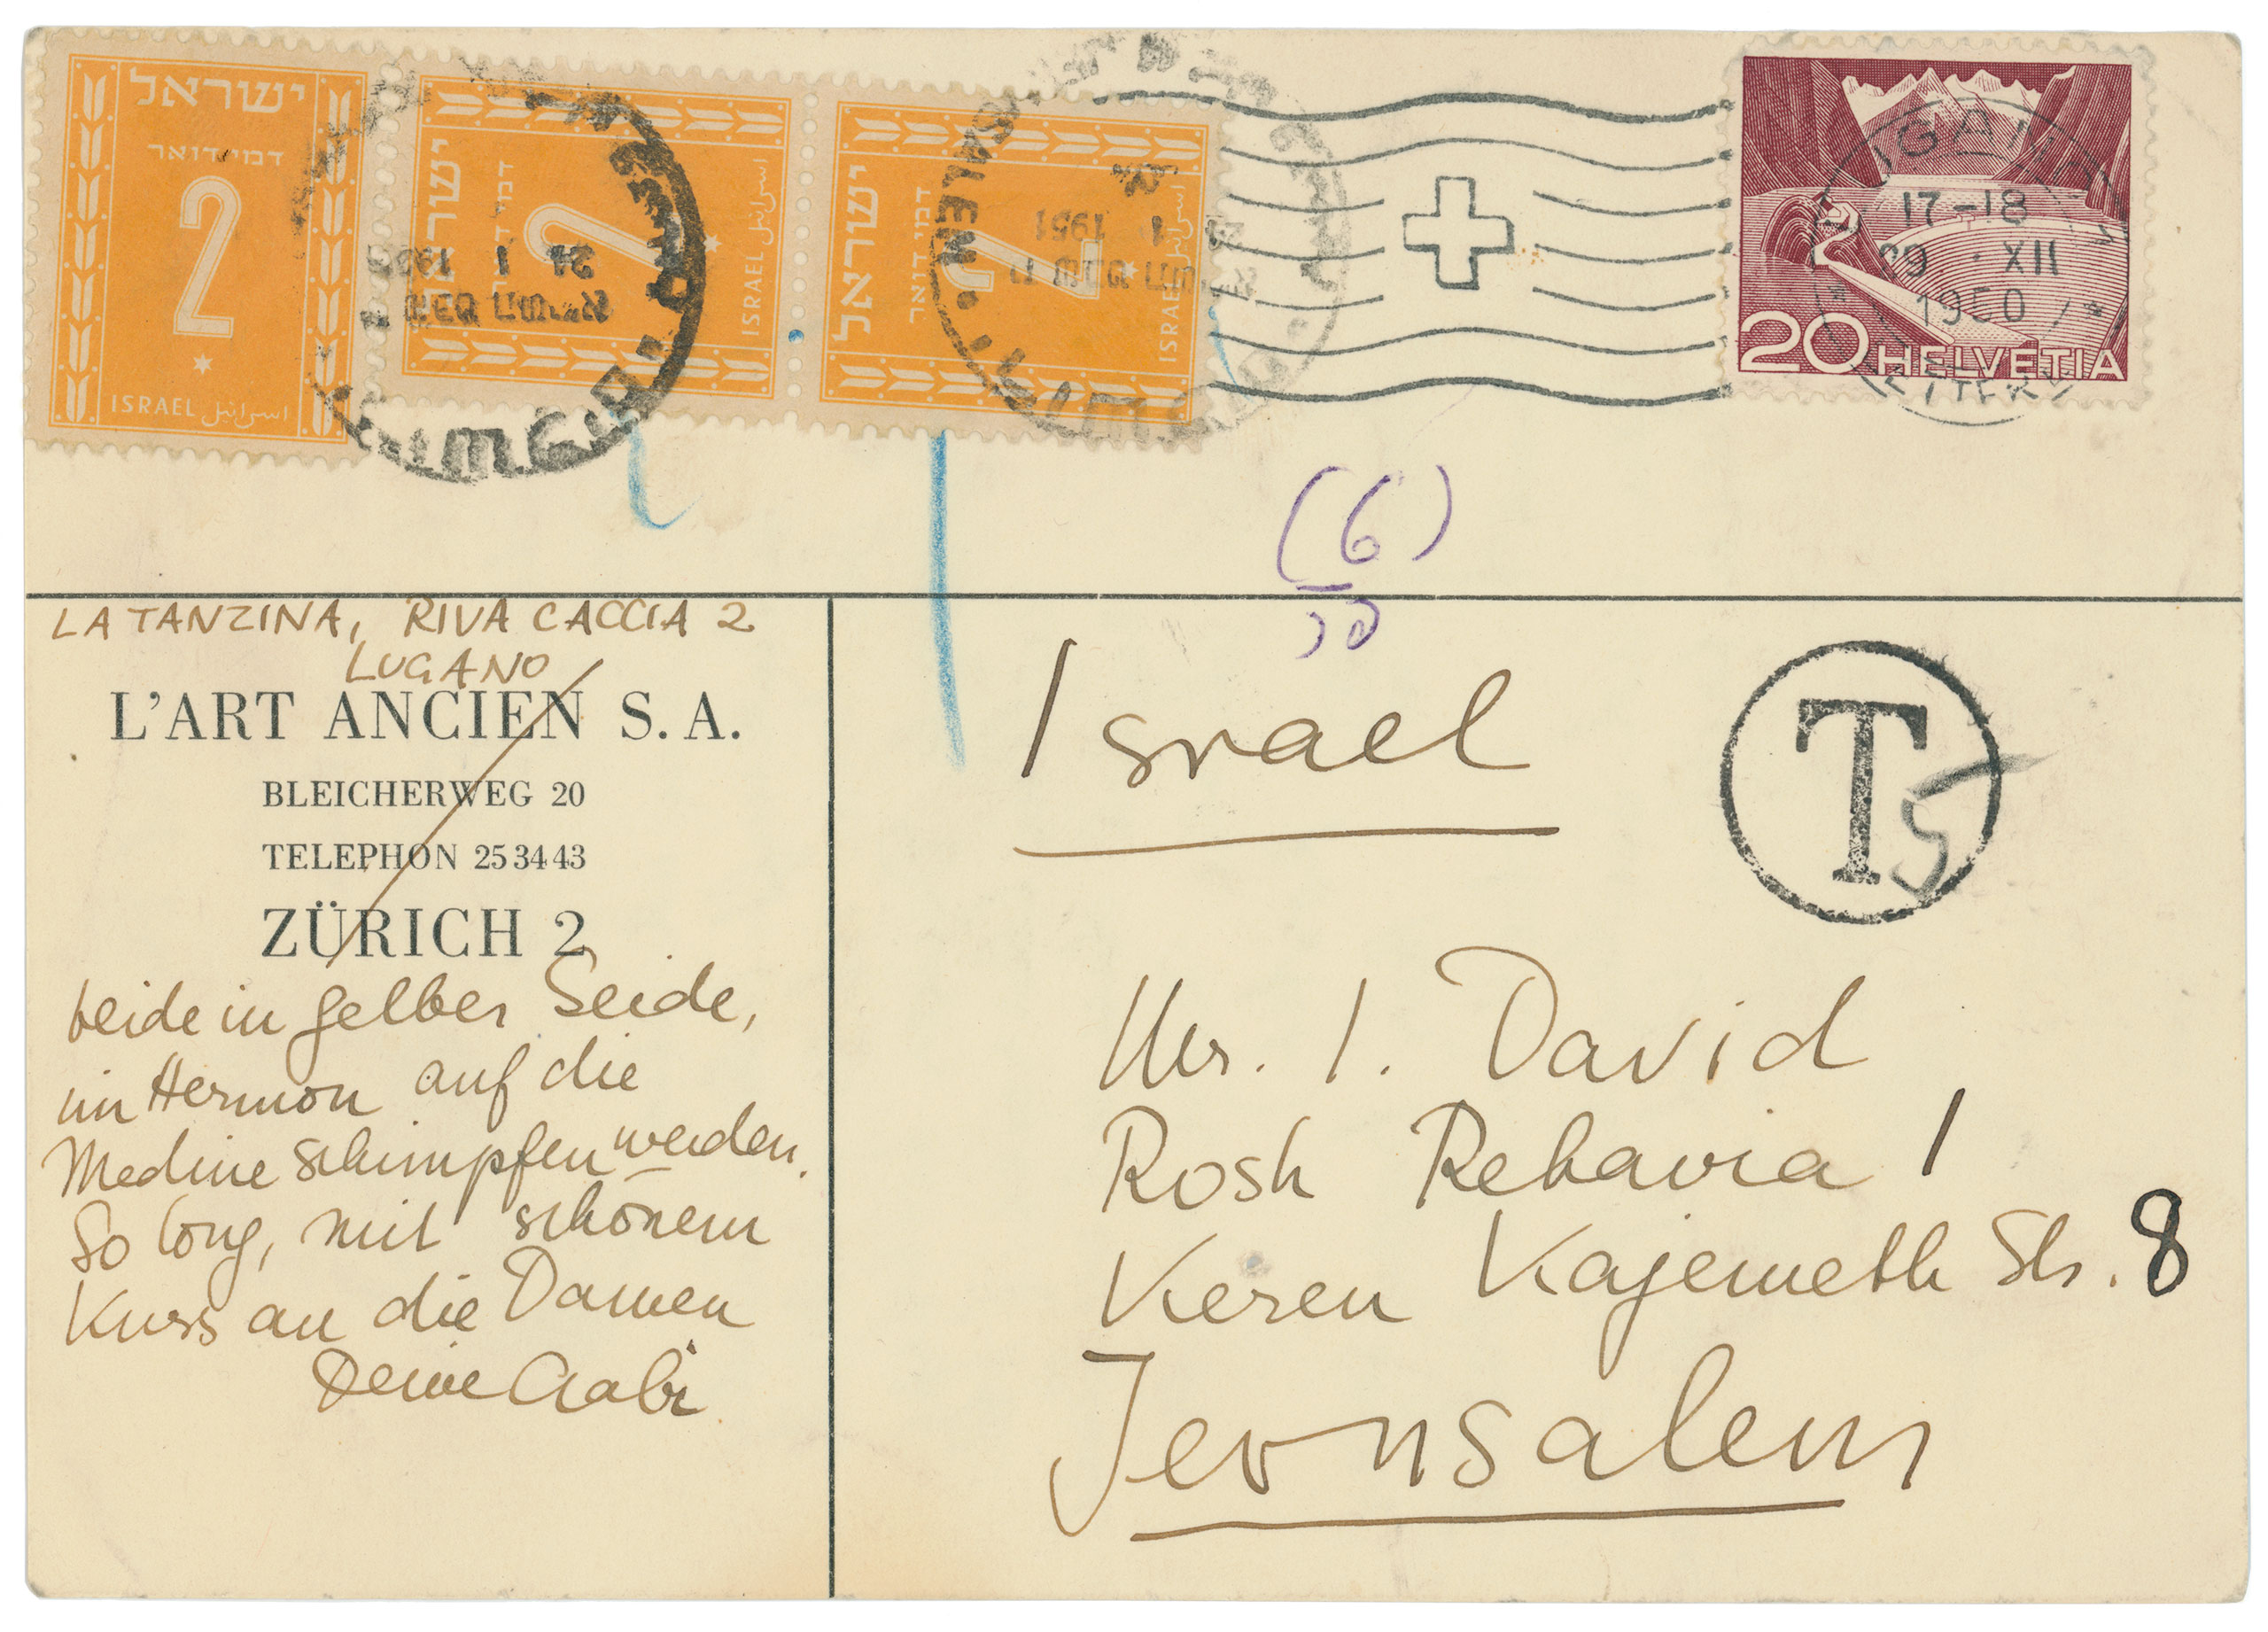 ישראל
דמי דואר
2
ISRAEL اسرائيل
ישראל
דמי דואר
2
ISRAEL اسرائيل
24 1
ישראל
דמי דואר
2
ISRAEL اسرائيل
1 1951
LUGANO
17-18
29 · XII
1950
20 HELVETIA
(6)
LA TANZINA, RIVA CACCIA 2
LUGANO
L'ART ANCIEN S. A.
BLEICHERWEG 20
TELEPHON 25 34 43
ZÜRICH 2
beide in gelber Seide,
im Hermon auf die
Medine schimpfen werden.
So long, mit schönem
Kuss an die Damen
Deine Gabi
Israel
T 5
Mr. I. David
Rosh Rehavia 1
Keren Kajemeth Str. 8
Jerusalem